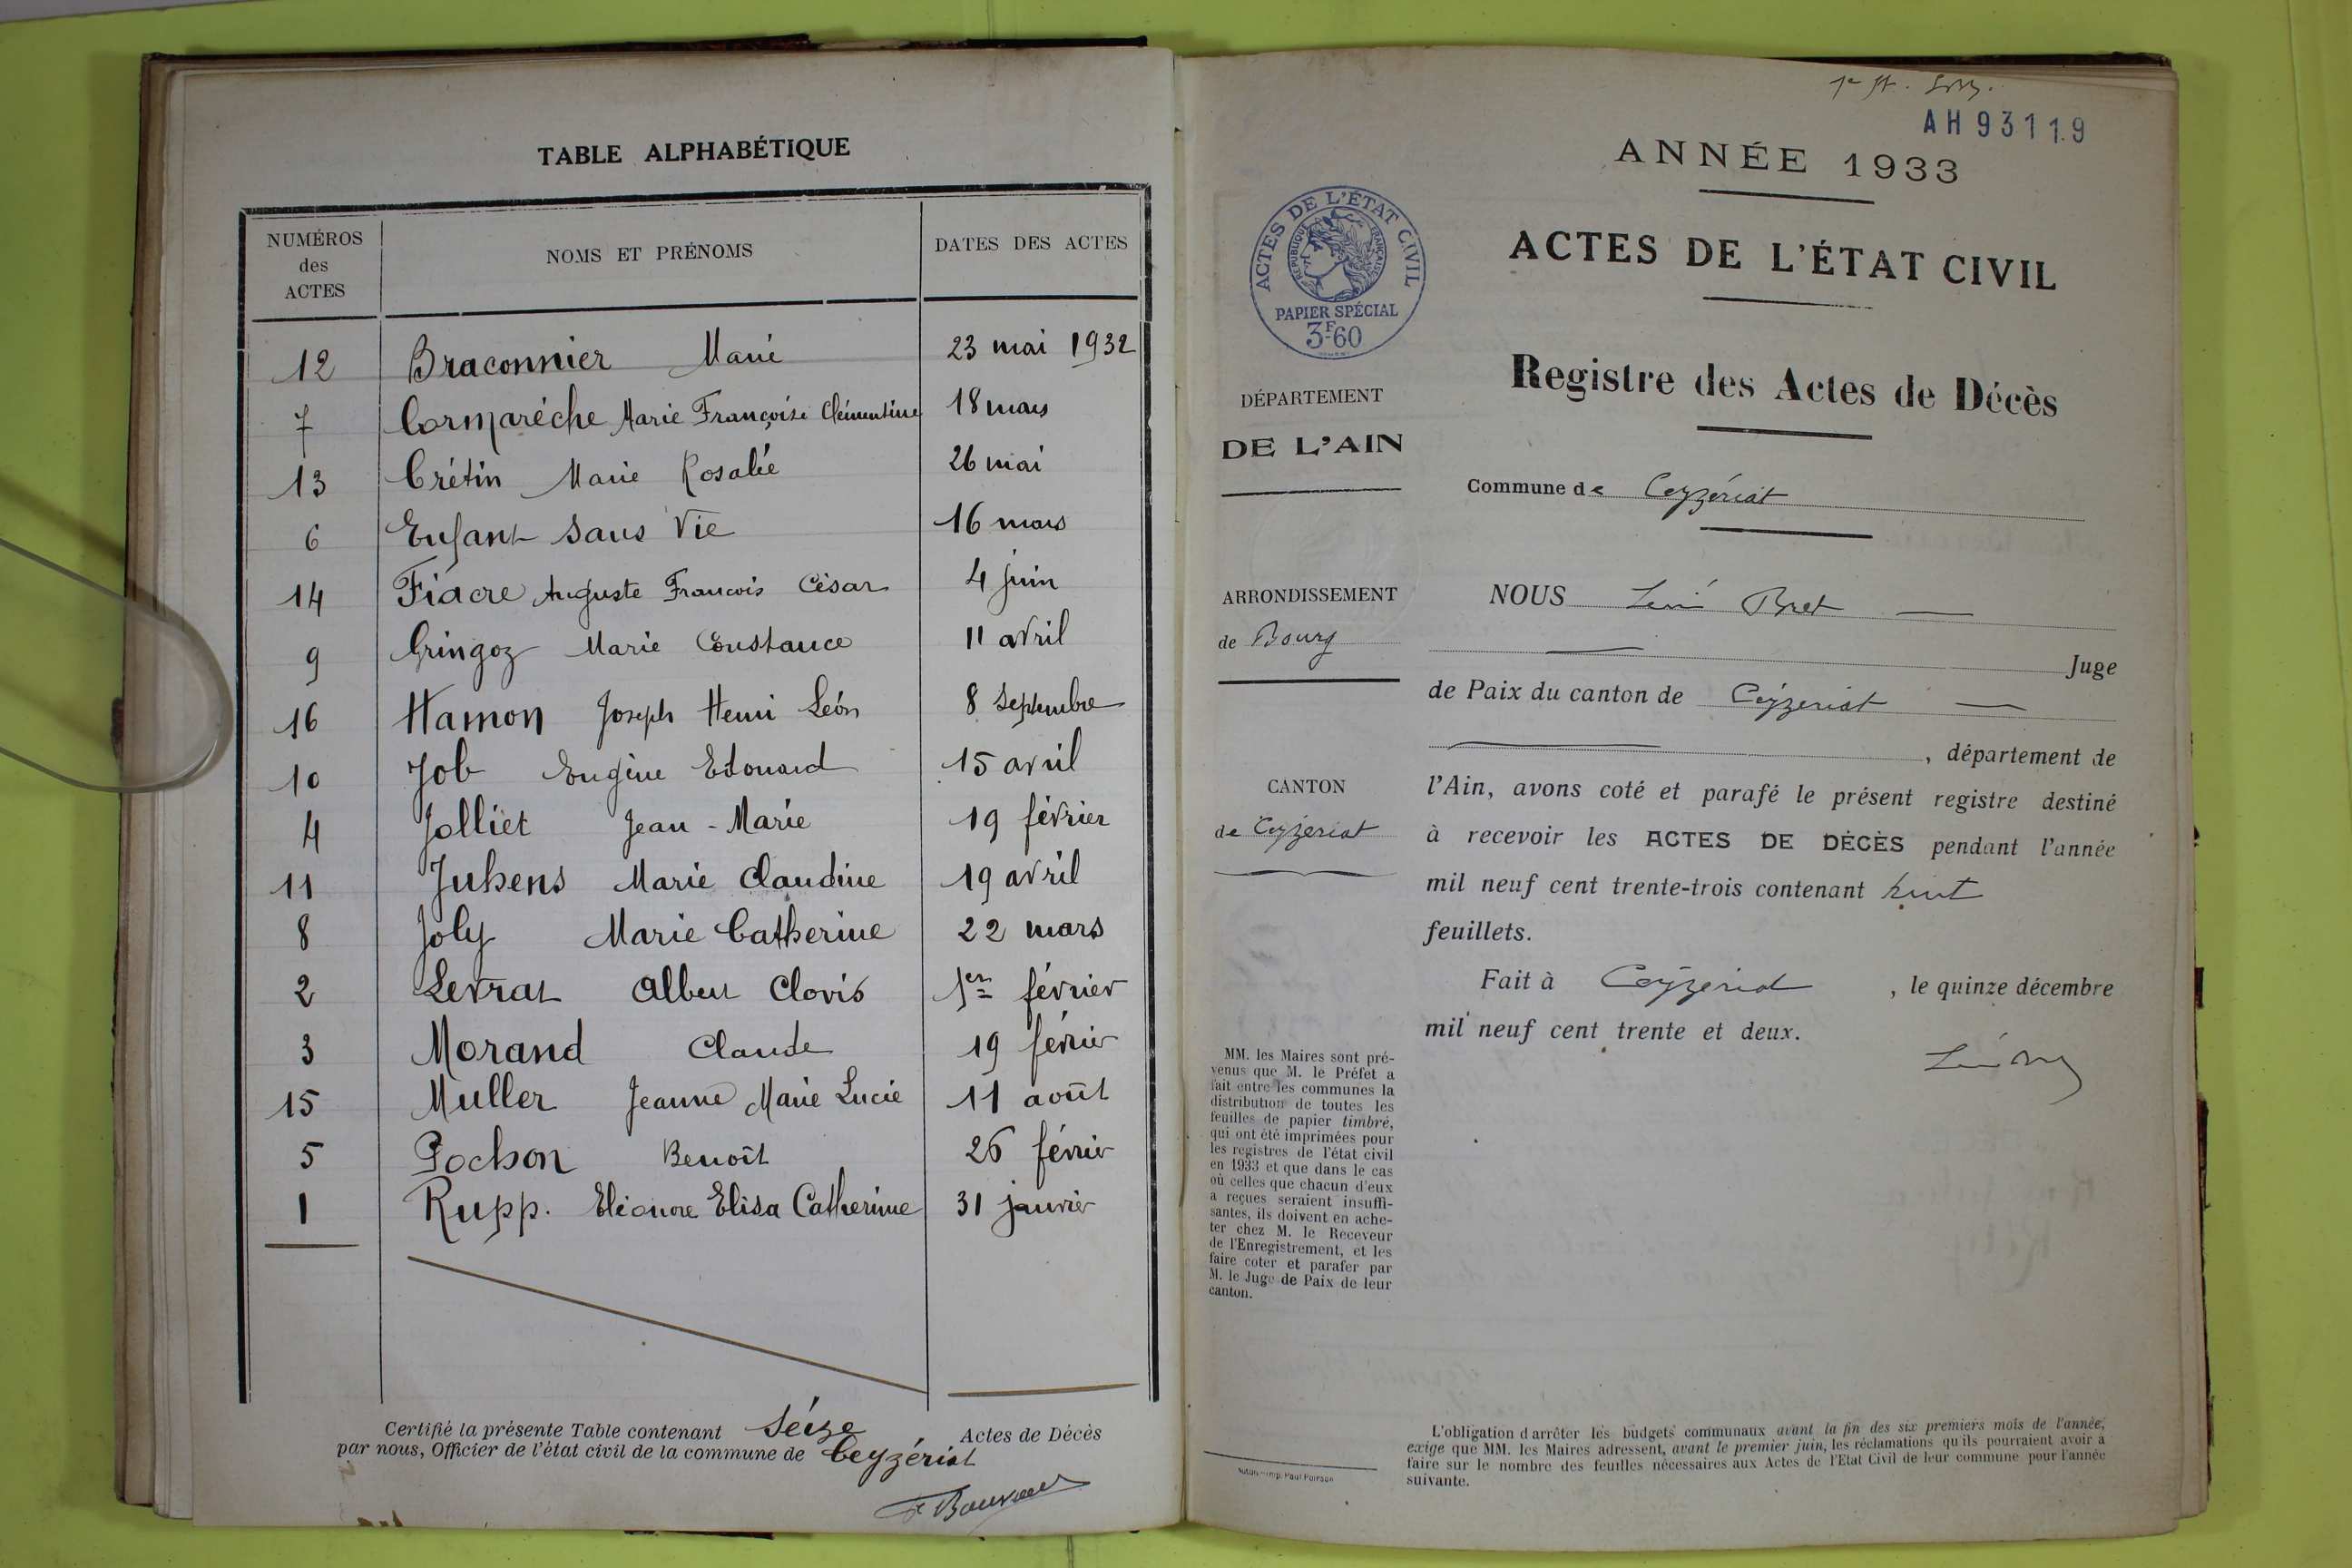 TABLE ALPHABÉTIQUE
NUMÉROS des ACTES NOMS ET PRÉNOMS DATES DES ACTES
12 Braconnier Marie 23 mai 1932
7 Cormarèche Marie Françoise Clémentine 18 mars
13 Crétin Marie Rosalie 26 mai
6 Enfant sans Vie 16 mars
14 Fiacre Auguste François César 4 juin
9 Gringoz Marie Constance 11 avril
16 Hamon Joseph Henri Léon 8 Septembre
10 Job Eugène Edouard 15 avril
4 Jolliet Jean-Marie 19 février
11 Juhens Marie Claudine 19 avril
8 Joly Marie Catherine 22 mars
2 Levrat Albert Clovis 1er février
3 Morand Claude 19 février
15 Muller Jeanne Marie Lucie 11 août
5 Pochon Benoît 26 février
1 Rupp. Eléonore Elisa Catherine 31 janvier
Certifié la présente Table contenant Séize Actes de Décès
par nous, Officier de l'état civil de la commune de Ceyzériat
AH 93119
ANNÉE 1933
ACTES DE L'ÉTAT CIVIL
RÉPUBLIQUE FRANÇAISE
PAPIER SPÉCIAL
3F60
ACTES DE L'ÉTAT CIVIL
Registre des Actes de Décès
DÉPARTEMENT
DE L'AIN
Commune de Ceyzériat
ARRONDISSEMENT
de Bourg
CANTON
de Ceyzeriat
NOUS Léon Bret
Juge
de Paix du canton de Ceyzeriat
, département de
l'Ain, avons coté et parafé le présent registre destiné
à recevoir les ACTES DE DÉCÈS pendant l'année
mil neuf cent trente-trois contenant huit
feuillets.
Fait à Ceyzeriat , le quinze décembre
mil neuf cent trente et deux.
MM. les Maires sont pré-
venus que M. le Préfet a
fait entre les communes la
distribution de toutes les
feuilles de papier timbré,
qui ont été imprimées pour
les registres de l'état civil
en 1933 et que dans le cas
où celles que chacun d'eux
a reçues seraient insuffi-
santes, ils doivent en ache-
ter chez M. le Receveur
de l'Enregistrement, et les
faire coter et parafer par
M. le Juge de Paix de leur
canton.
L'obligation d'arrêter les budgets communaux avant la fin des six premiers mois de l'année,
exige que MM. les Maires adressent, avant le premier juin, les réclamations qu'ils pourraient avoir à
faire sur le nombre des feuilles nécessaires aux Actes de l'Etat Civil de leur commune pour l'année
suivante.